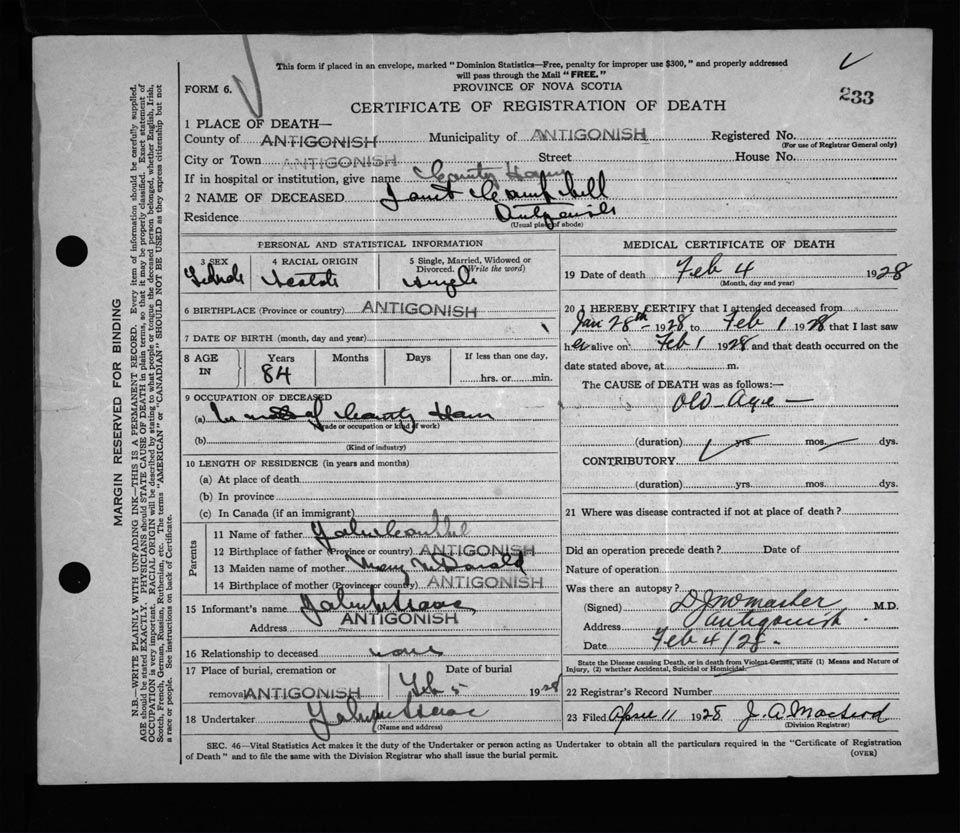 This form if placed in an envelope, marked "Dominion Statistics—Free, penalty for improper use $300," and properly addressed
will pass through the Mail "FREE."
FORM 6.
PROVINCE OF NOVA SCOTIA
233
CERTIFICATE OF REGISTRATION OF DEATH
1 PLACE OF DEATH—
County of ANTIGONISH Municipality of ANTIGONISH Registered No.
(For use of Registrar General only)
City or Town ANTIGONISH Street House No.
If in hospital or institution, give name County Home
2 NAME OF DECEASED Janet Campbell
Residence Antigonish
(Usual place of abode)
PERSONAL AND STATISTICAL INFORMATION
3 SEX 4 RACIAL ORIGIN 5 Single, Married, Widowed or
Divorced. (Write the word)
Female Scotch Single
6 BIRTHPLACE (Province or country) ANTIGONISH
7 DATE OF BIRTH (month, day and year)
8 AGE IN Years Months Days If less than one day,
84 hrs. or min.
9 OCCUPATION OF DECEASED
(a) of County Home
(Trade or occupation or kind of work)
(b)
(Kind of industry)
10 LENGTH OF RESIDENCE (in years and months)
(a) At place of death
(b) In province
(c) In Canada (if an immigrant)
Parents
11 Name of father John
12 Birthplace of father (Province or country) ANTIGONISH
13 Maiden name of mother Mary McDonald
14 Birthplace of mother (Province or county) ANTIGONISH
15 Informant's name John McIsaac
Address ANTIGONISH
16 Relationship to deceased none
17 Place of burial, cremation or Date of burial
removal ANTIGONISH Feb 5 1928
18 Undertaker John McIsaac
(Name and address)
MEDICAL CERTIFICATE OF DEATH
19 Date of death Feb 4 1928
(Month, day and year)
20 I HEREBY CERTIFY that I attended deceased from
Jan 28th 1928 to Feb 1 1928 that I last saw
her alive on Feb 1 1928 and that death occurred on the
date stated above, at m.
The CAUSE OF DEATH was as follows:—
Old Age —
(duration) yrs. mos. dys.
CONTRIBUTORY
(duration) yrs. mos. dys.
21 Where was disease contracted if not at place of death?
Did an operation precede death? Date of
Nature of operation
Was there an autopsy?
(Signed) M.D.
Address Antigonish
Date Feb 4/28
State the Disease causing Death, or in death from Violent Causes, state (1) Means and Nature of
Injury, (2) whether Accidental, Suicidal or Homicidal.
22 Registrar's Record Number
23 Filed April 11 1928 J. A. MacLeod
(Division Registrar)
SEC. 46—Vital Statistics Act makes it the duty of the Undertaker or person acting as Undertaker to obtain all the particulars required in the "Certificate of Registration
of Death" and to file the same with the Division Registrar who shall issue the burial permit. (OVER)
MARGIN RESERVED FOR BINDING
N.B.—WRITE PLAINLY WITH UNFADING INK—THIS IS A PERMANENT RECORD. Every item of information should be carefully supplied.
AGE should be stated EXACTLY. PHYSICIANS should STATE CAUSE OF DEATH in plain terms, so that it may be properly classified. Exact statement of
OCCUPATION is very important. RACIAL ORIGIN will be described by stating to what people or tongue the deceased person belonged, whether English, Irish,
Scotch, French, German, Russian, Ruthenian, etc. The terms "AMERICAN" or "CANADIAN" SHOULD NOT BE USED as they express citizenship but not
a race or people. See instructions on back of Certificate.